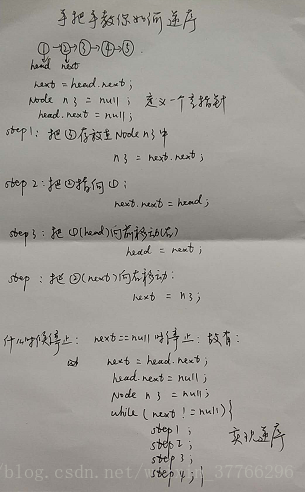 手把手教你如何逆序
① → ② → ③ → ④ → ⑤
head next
next = head.next;
Node n3 = null; 定义一个空指针
head.next = null;
step1: 把③存放在Node n3中
n3 = next.next;
step 2: 把②指向①;
next.next = head;
step 3: 把①(head)向前移动(右)
head = next;
step : 把②(next)向右移动:
next = n3;
什么时候停止: next==null 时停止: 故有:
next = head.next;
head.next = null;
Node n3 = null;
while (next != null) {
step 1;
step 2; 实现逆序
step 3;
step 4; }
blog.csdn.net/
37766296